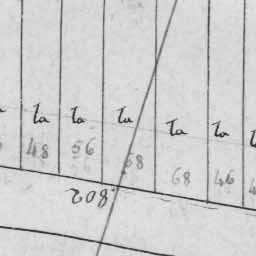 la la la la la la
48 56 68 68 46
208.